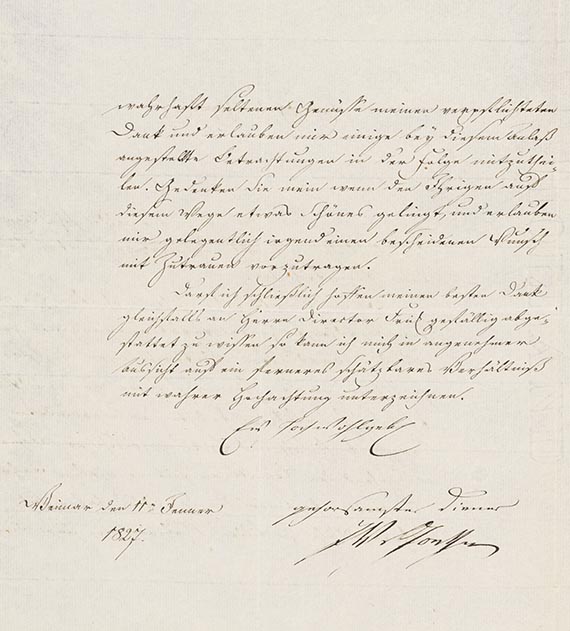 wahrhaft seltenen Genüsse meinen verpflichteten
Dank und erlauben mir einige bey diesem Anlaß
angestellte Betrachtungen in der Folge mitzuthei-
len. Gedenken Sie mein wenn den Ihrigen auf
diesem Wege etwas Schönes gelingt, und erlauben
mir gelegentlich irgend einen bescheidenen Wunsch
mit Zutrauen vorzutragen.
Darf ich schließlich hoffen meinen besten Dank
gleichfalls an Herrn Director gefällig abge-
stattet zu wissen so kann ich mich in angenehmer
Aussicht auf ein ferneres schätzbares Verhältniß
mit wahrer Hochachtung unterzeichnen.
Ew Hochwohlgeb
Weimar den 11n Jenner
1827.
gehorsamster Diener
JWvGoethe